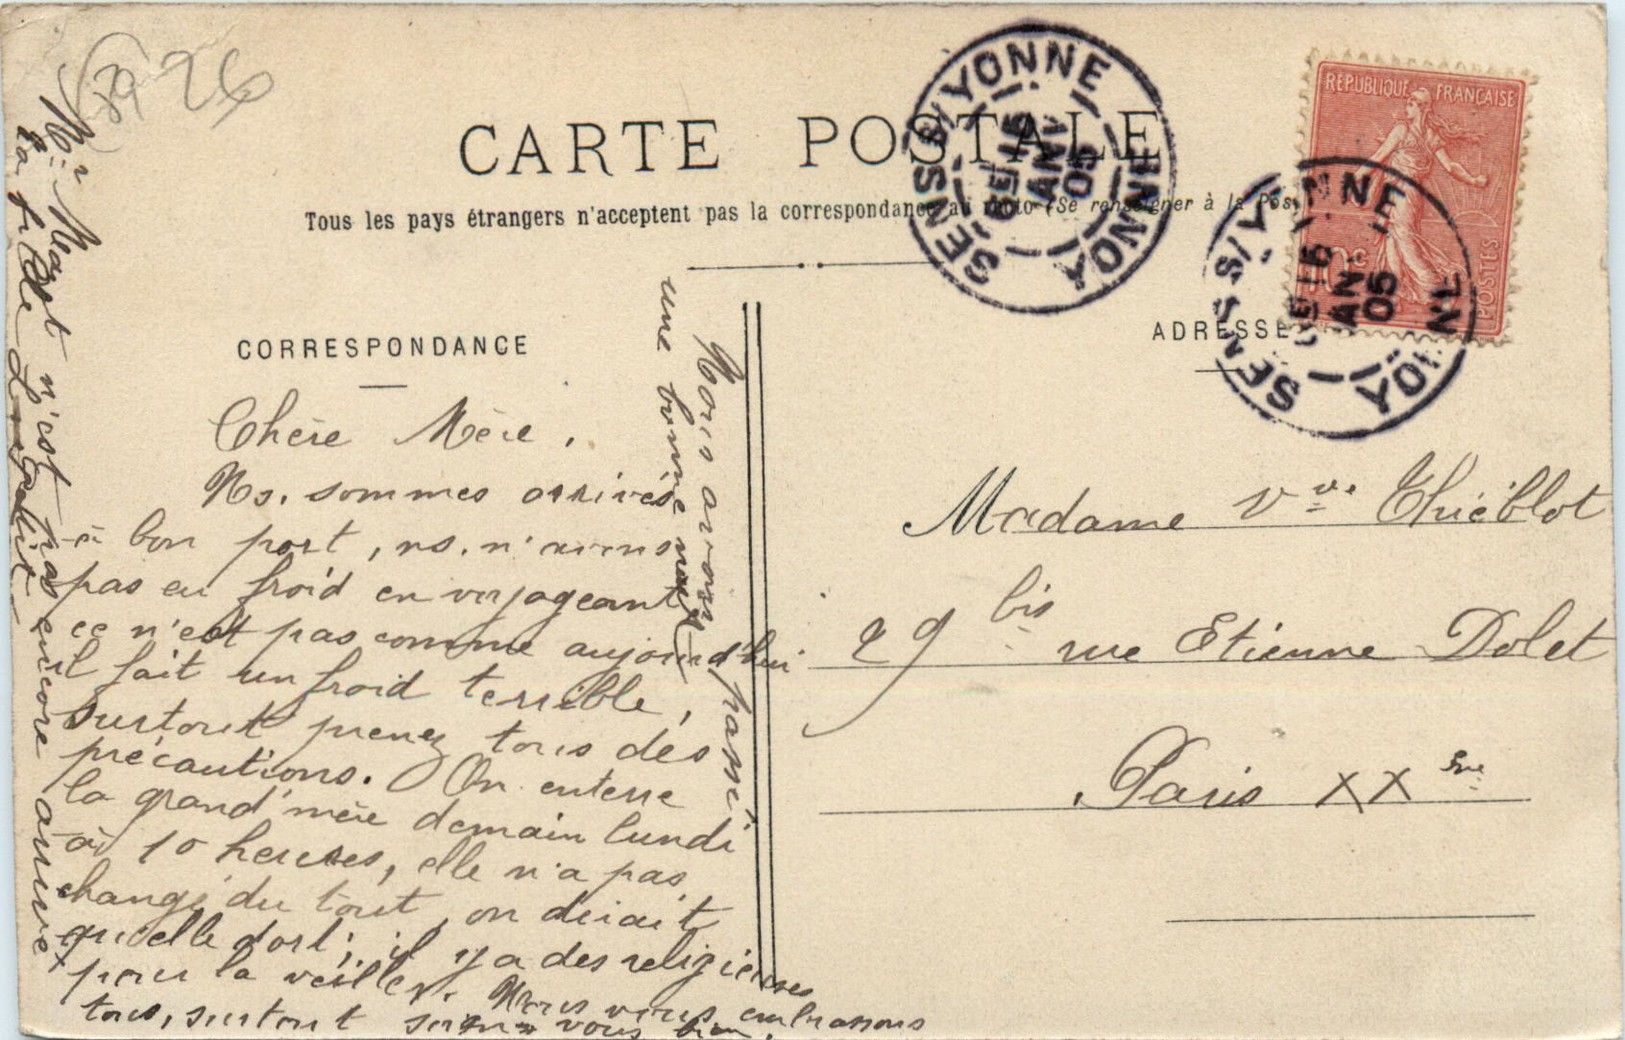 26
CARTE POSTALE
Tous les pays étrangers n'acceptent pas la correspondance au recto (Se renseigner à la Pos
CORRESPONDANCE
ADRESSE
SENS S/YONNE
YONNE
15
JANV
05
SENS S/YONNE
YONNE
15
JANV
05
REPUBLIQUE FRANÇAISE
10c
POSTES
Chère Mère,
Ns. sommes arrivés
à bon port, ns. n'avons
pas eu froid en voyageant
ce n'est pas comme aujourd'hui
il fait un froid terrible,
surtout prenez tous des
précautions. On enterre
la grand'mère demain lundi
à 10 heures, elle n'a pas
changé du tout, on dirait
qu'elle dort; il y a des religieuses
pour la veiller. Nous vous embrassons
tous, surtout soignez vous bien.
Nous avons passé
une bonne nuit
Mr Mayot n'est pas encore arrivé
La fille
Madame Vve Thiéblot
29 bis rue Etienne Dolet
Paris XXème